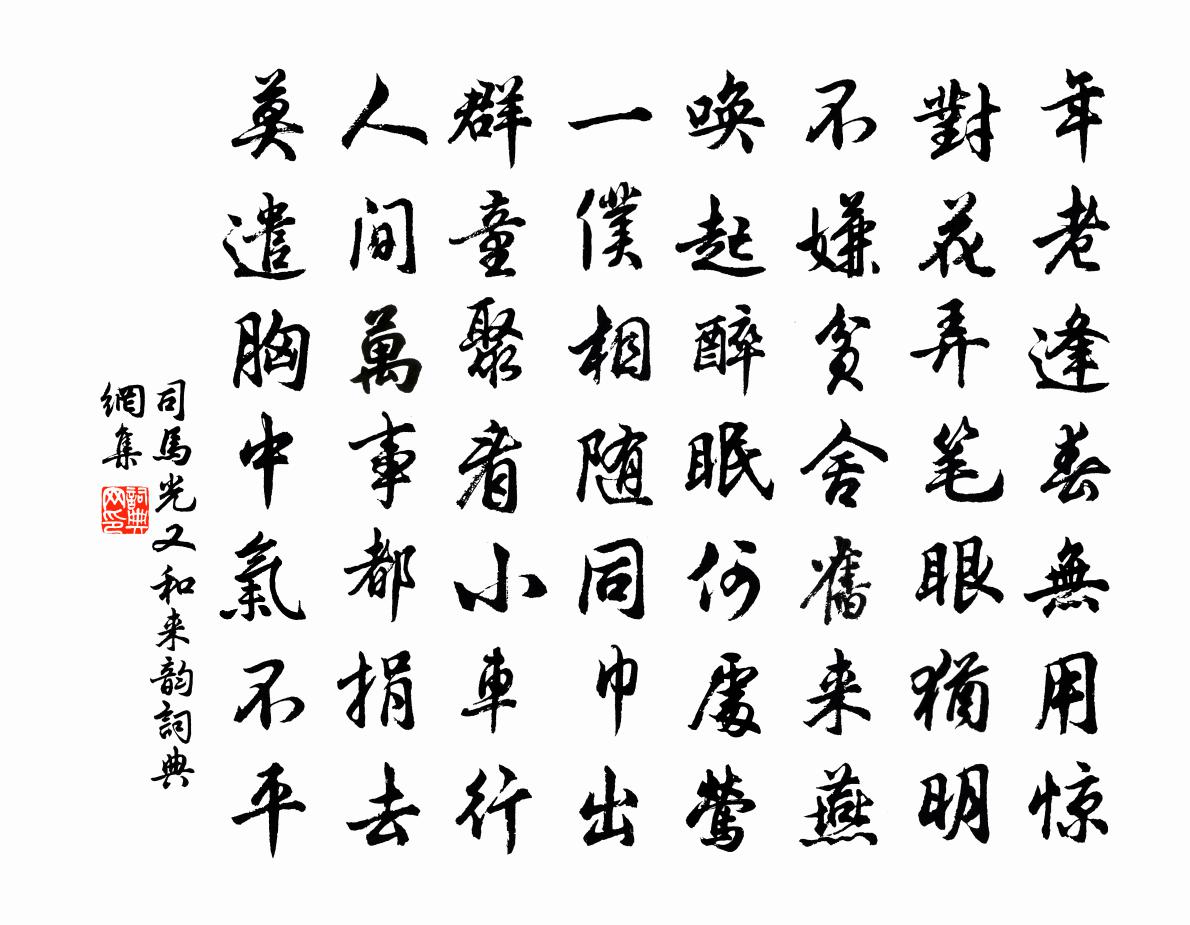 年老逢春無用惊
對花弄笔眼猶明
不嫌貧舍舊来燕
喚起醉眠何處鶯
一僕相随同巾出
群童聚看小車行
人间萬事都捐去
莫遣胸中氣不平
司馬光又和来韵詞典
網集
詞典
网印